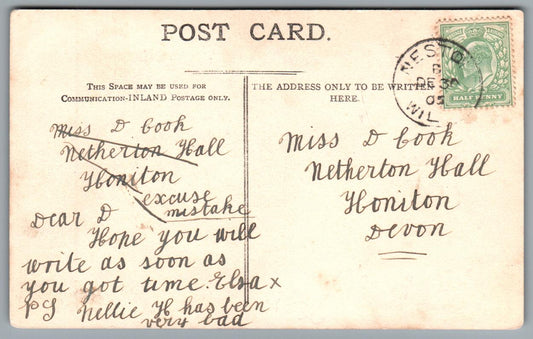 POST CARD.
THIS SPACE MAY BE USED FOR
COMMUNICATION-INLAND POSTAGE ONLY.
THE ADDRESS ONLY TO BE WRITTEN
HERE.
HALF PENNY
WIL
Miss D Cook
Netherton Hall
Honiton
excuse
mistake
Dear D
Hope you will
write as soon as
you got time. Elsa x
PS Nellie H has been
very bad
Miss D Cook
Netherton Hall
Honiton
Devon